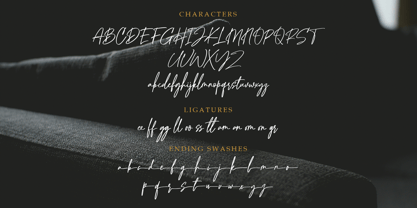 CHARACTERS
ABCDEFGHIJKLMNOPQRST
UVWXYZ
abcdefghijklmnopqrstuvwxyz
LIGATURES
ee ff gg ll oo ss tt an on om or gr
ENDING SWASHES
a b c d e f g h i j k l m n o
p q r s t u v w x y z